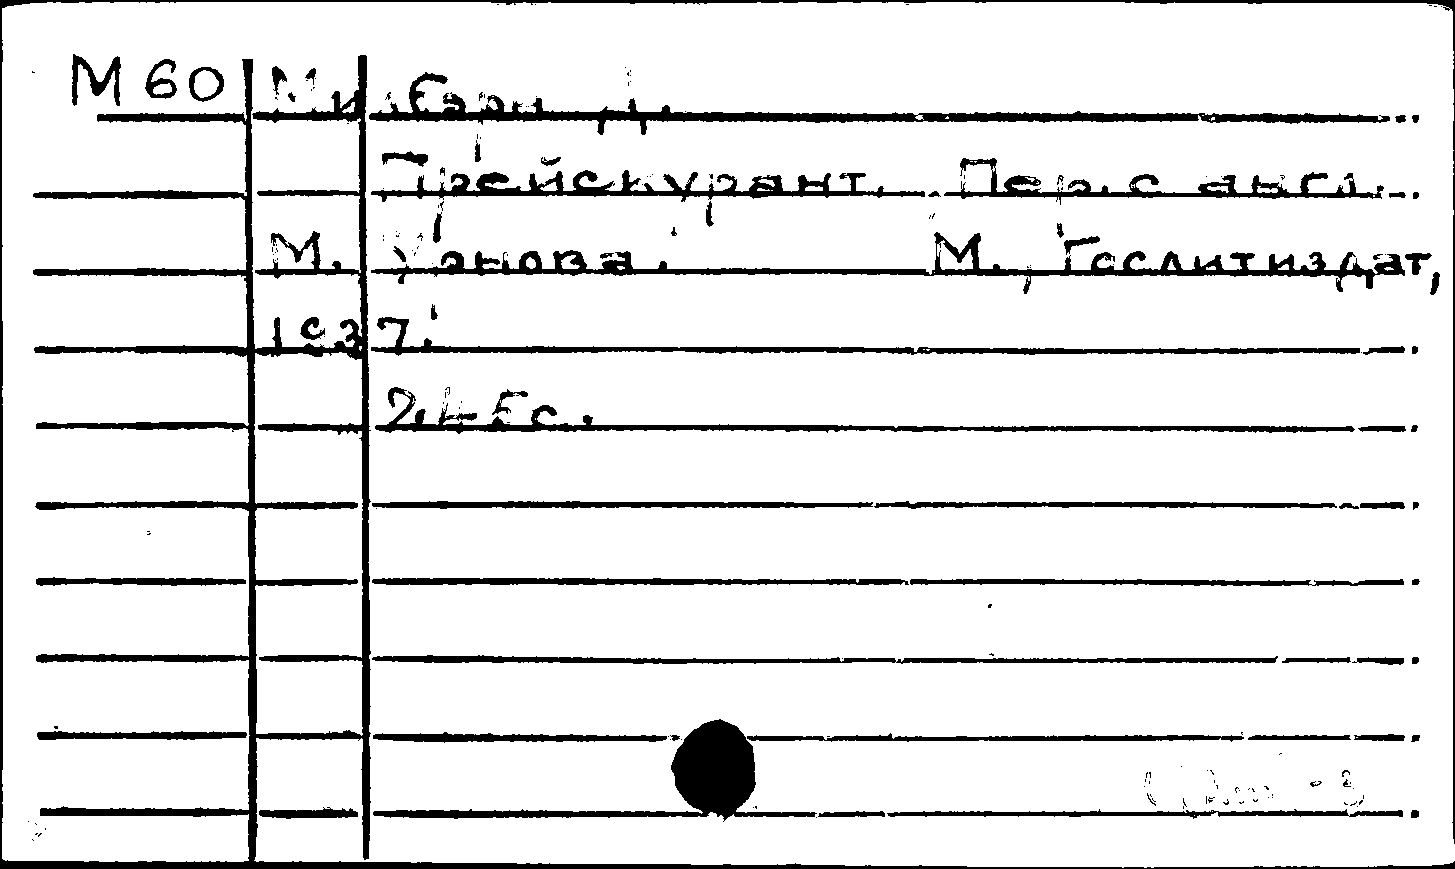 М60 Милберн Д.
Прейскурант. Пер. с англ.
М. Уанова. М., Гослитиздат,
1937.
245с.